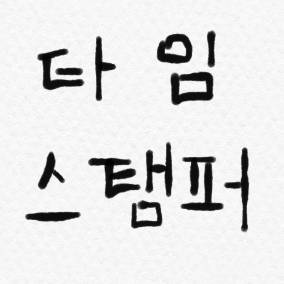 타임
스탬퍼